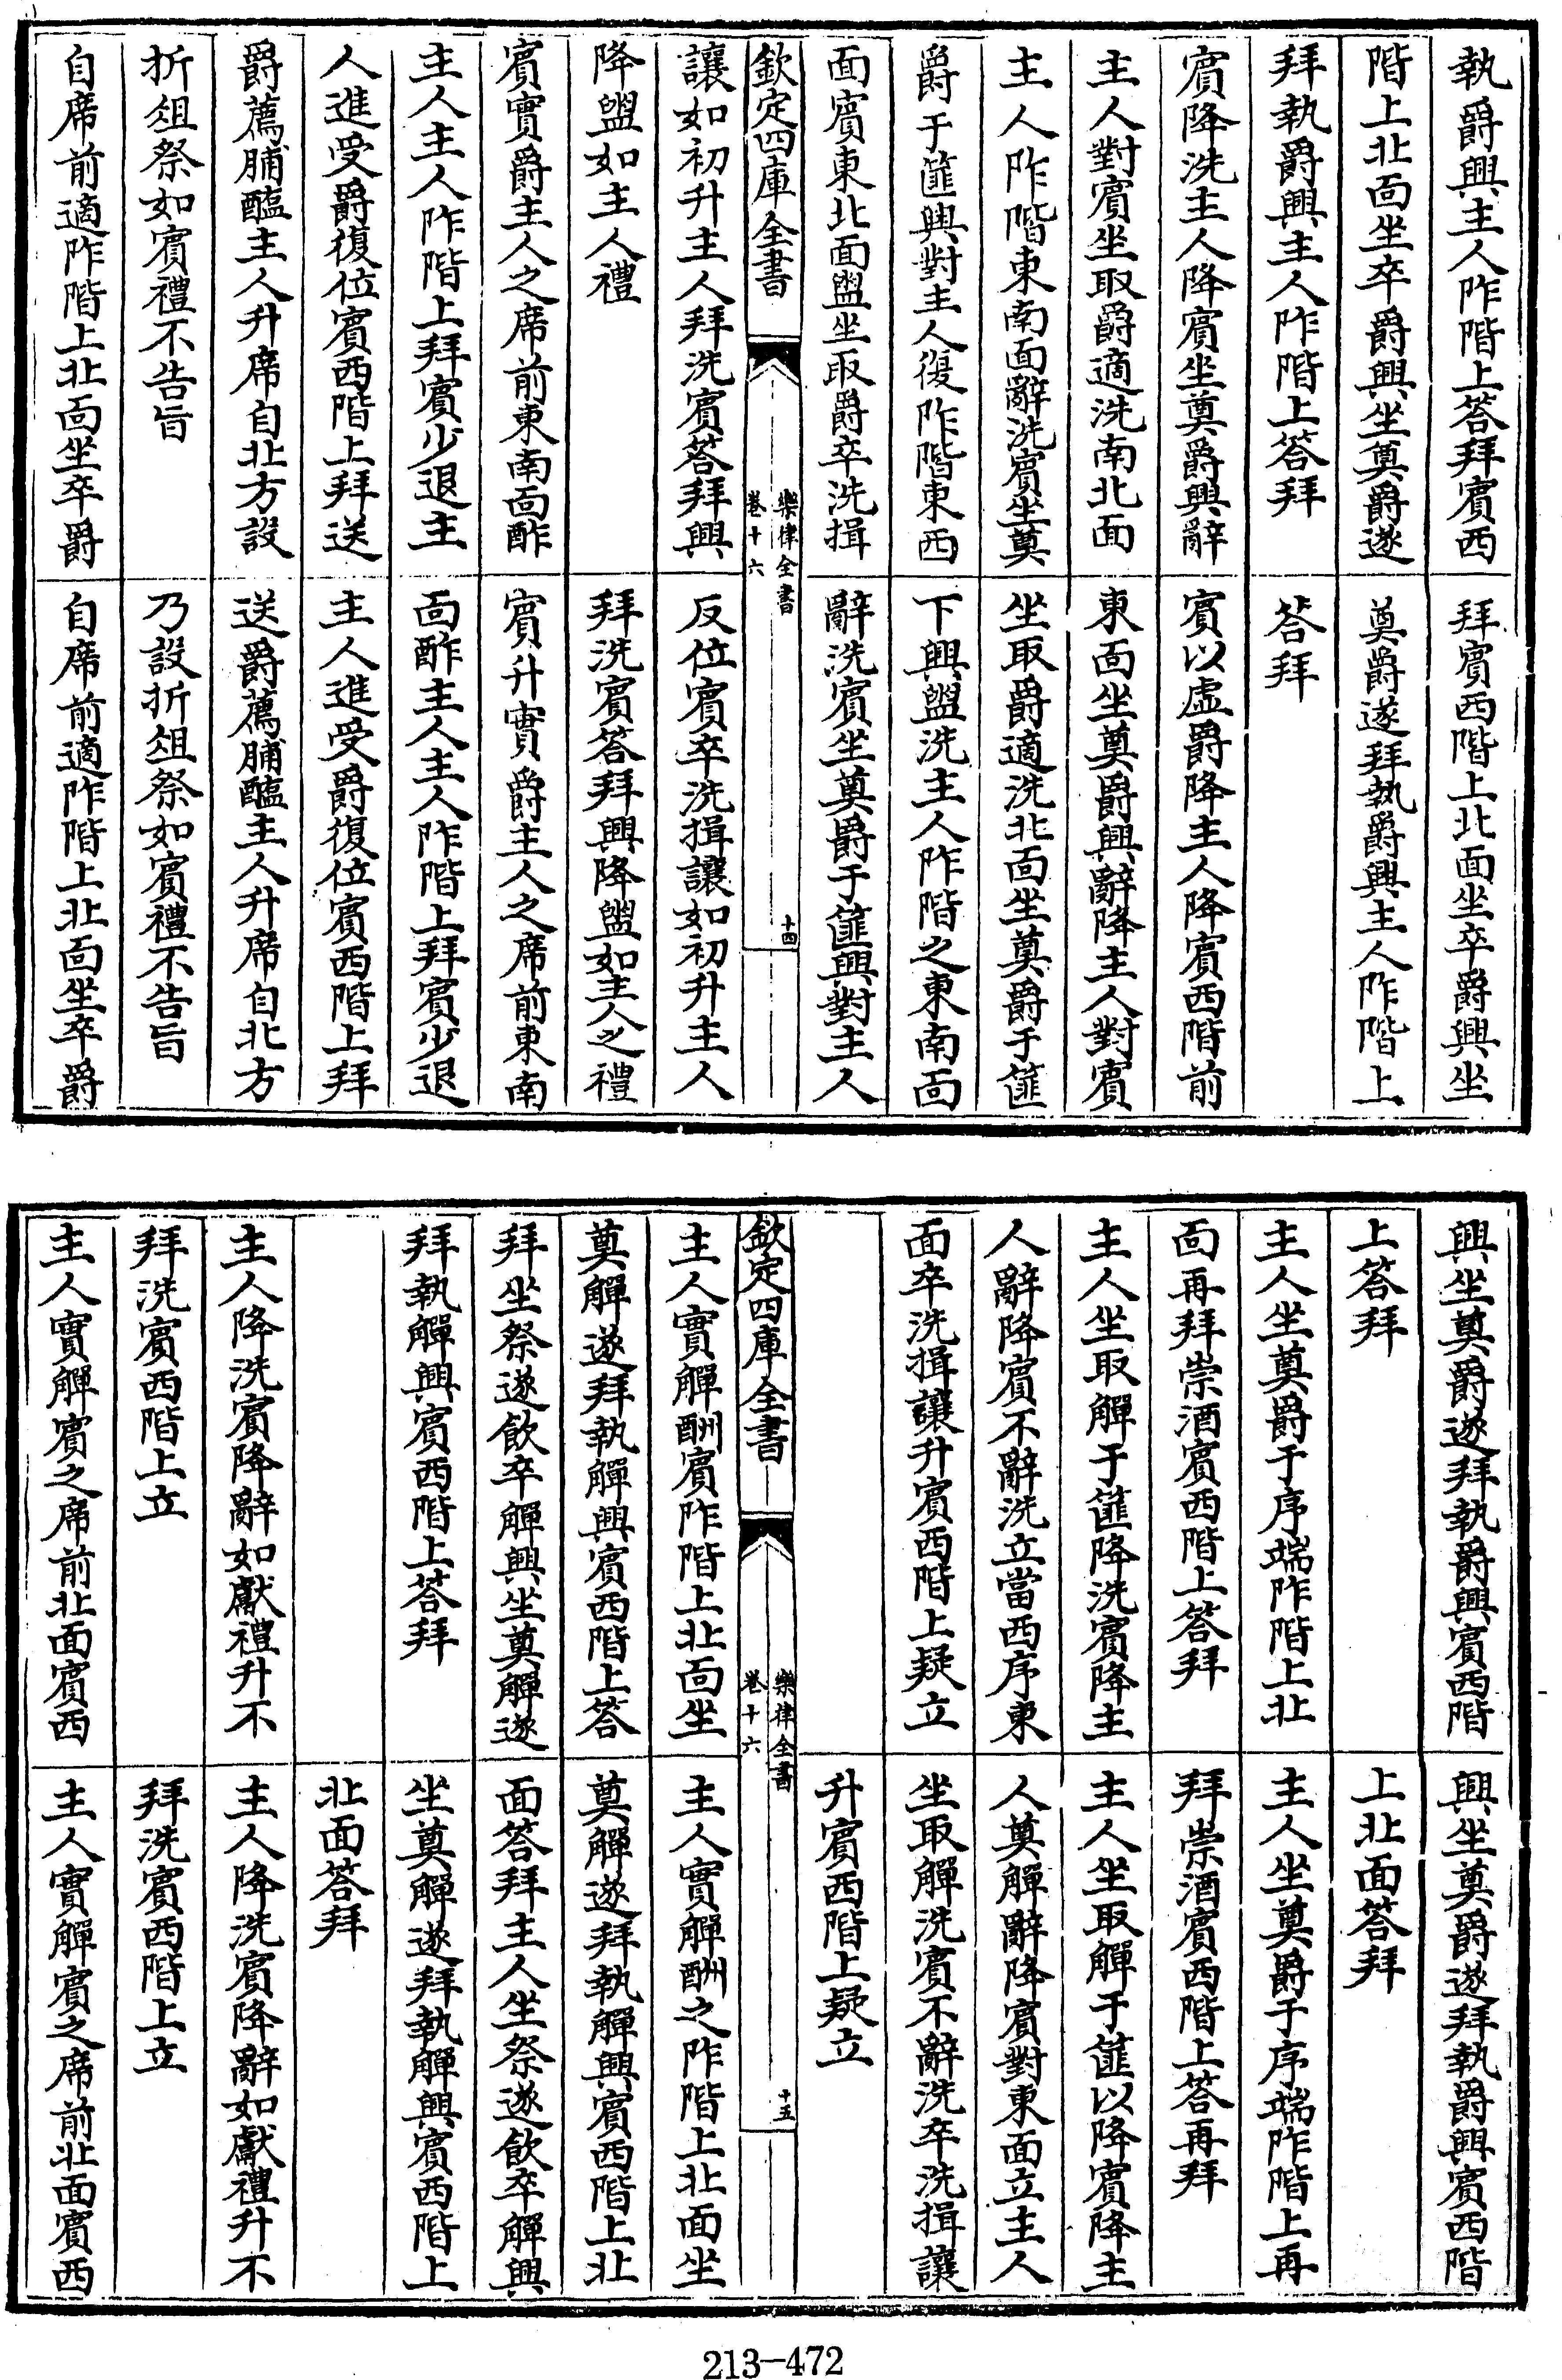 執爵興主人阼階上答拜賓西
階上北面坐卒爵興坐奠爵遂
拜執爵興主人阼階上答拜
賓降洗主人降賓坐奠爵興辭
主人對賓坐取爵適洗南北面
主人阼階東南面辭洗賓坐奠
爵于篚興對主人復阼階東西
面賓東北面盥坐取爵卒洗揖
欽定四庫全書
樂律全書
卷十六
十四
讓如初升主人拜洗賓答拜興
降盥如主人禮
賓實爵主人之席前東南面酢
主人主人阼階上拜賓少退主
人進受爵復位賓西階上拜送
爵薦脯醢主人升席自北方設
折俎祭如賓禮不告旨
自席前適阼階上北面坐卒爵
拜賓西階上北面坐卒爵興坐
奠爵遂拜執爵興主人阼階上
答拜
賓以虛爵降主人降賓西階前
東面坐奠爵興辭降主人對賓
坐取爵適洗北面坐奠爵于篚
下興盥洗主人阼階之東南面
辭洗賓坐奠爵于篚興對主人
反位賓卒洗揖讓如初升主人
拜洗賓答拜興降盥如主人之禮
賓升實爵主人之席前東南
面酢主人主人阼階上拜賓少退
主人進受爵復位賓西階上拜
送爵薦脯醢主人升席自北方
乃設折俎祭如賓禮不告旨
自席前適阼階上北面坐卒爵
興坐奠爵遂拜執爵興賓西階
上答拜
主人坐奠爵于序端阼階上北
面再拜崇酒賓西階上答拜
主人坐取觶于篚降洗賓降主
人辭降賓不辭洗立當西序東
面卒洗揖讓升賓西階上疑立
欽定四庫全書
樂律全書
卷十六
十五
主人實觶酬賓阼階上北面坐
奠觶遂拜執觶興賓西階上答
拜坐祭遂飲卒觶興坐奠觶遂
拜執觶興賓西階上答拜
主人降洗賓降辭如獻禮升不
拜洗賓西階上立
主人實觶賓之席前北面賓西
興坐奠爵遂拜執爵興賓西階
上北面答拜
主人坐奠爵于序端阼階上再
拜崇酒賓西階上答再拜
主人坐取觶于篚以降賓降主
人奠觶辭降賓對東面立主人
坐取觶洗賓不辭洗卒洗揖讓
升賓西階上疑立
主人實觶酬之阼階上北面坐
奠觶遂拜執觶興賓西階上北
面答拜主人坐祭遂飲卒觶興
坐奠觶遂拜執觶興賓西階上
北面答拜
主人降洗賓降辭如獻禮升不
拜洗賓西階上立
主人實觶賓之席前北面賓西
213-472